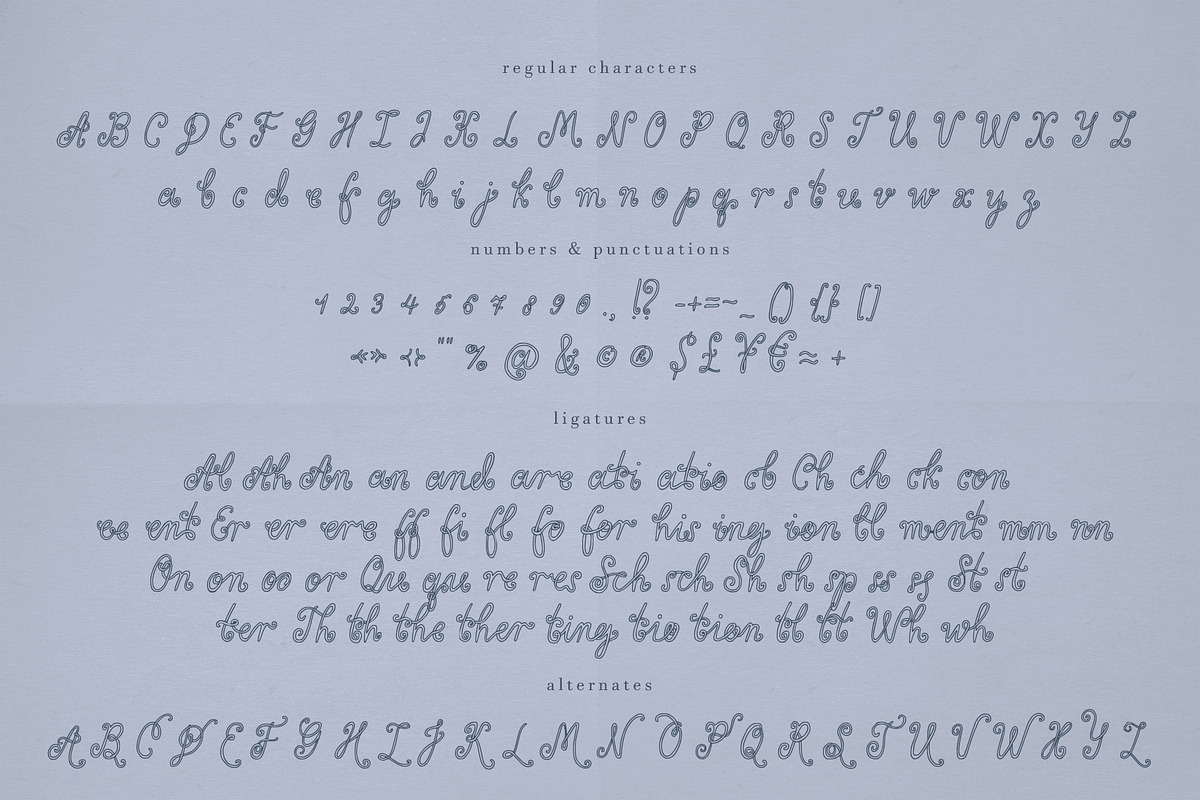 regular characters
A B C D E F G H I J K L M N O P Q R S T U V W X Y Z
a b c d e f g h i j k l m n o p q r s t u v w x y z
numbers & punctuations
1 2 3 4 5 6 7 8 9 0 . , ! ? - + = ~ _ ( ) { } [ ]
« » ‹ › " " % @ & © ® $ £ ¥ € ≈ +
ligatures
Al Ah An an and are ati atio ct Ch ch ck con
ee ent Er er ere ff fi fl fo for his ing ion ll ment mm nn
On on oo or Qu qu re res Sch sch Sh sh sp ss sy St st
ter Th th the ther ting tio tion tl tt Wh wh
alternates
A B C D E F G H I J K L M N O P Q R S T U V W X Y Z